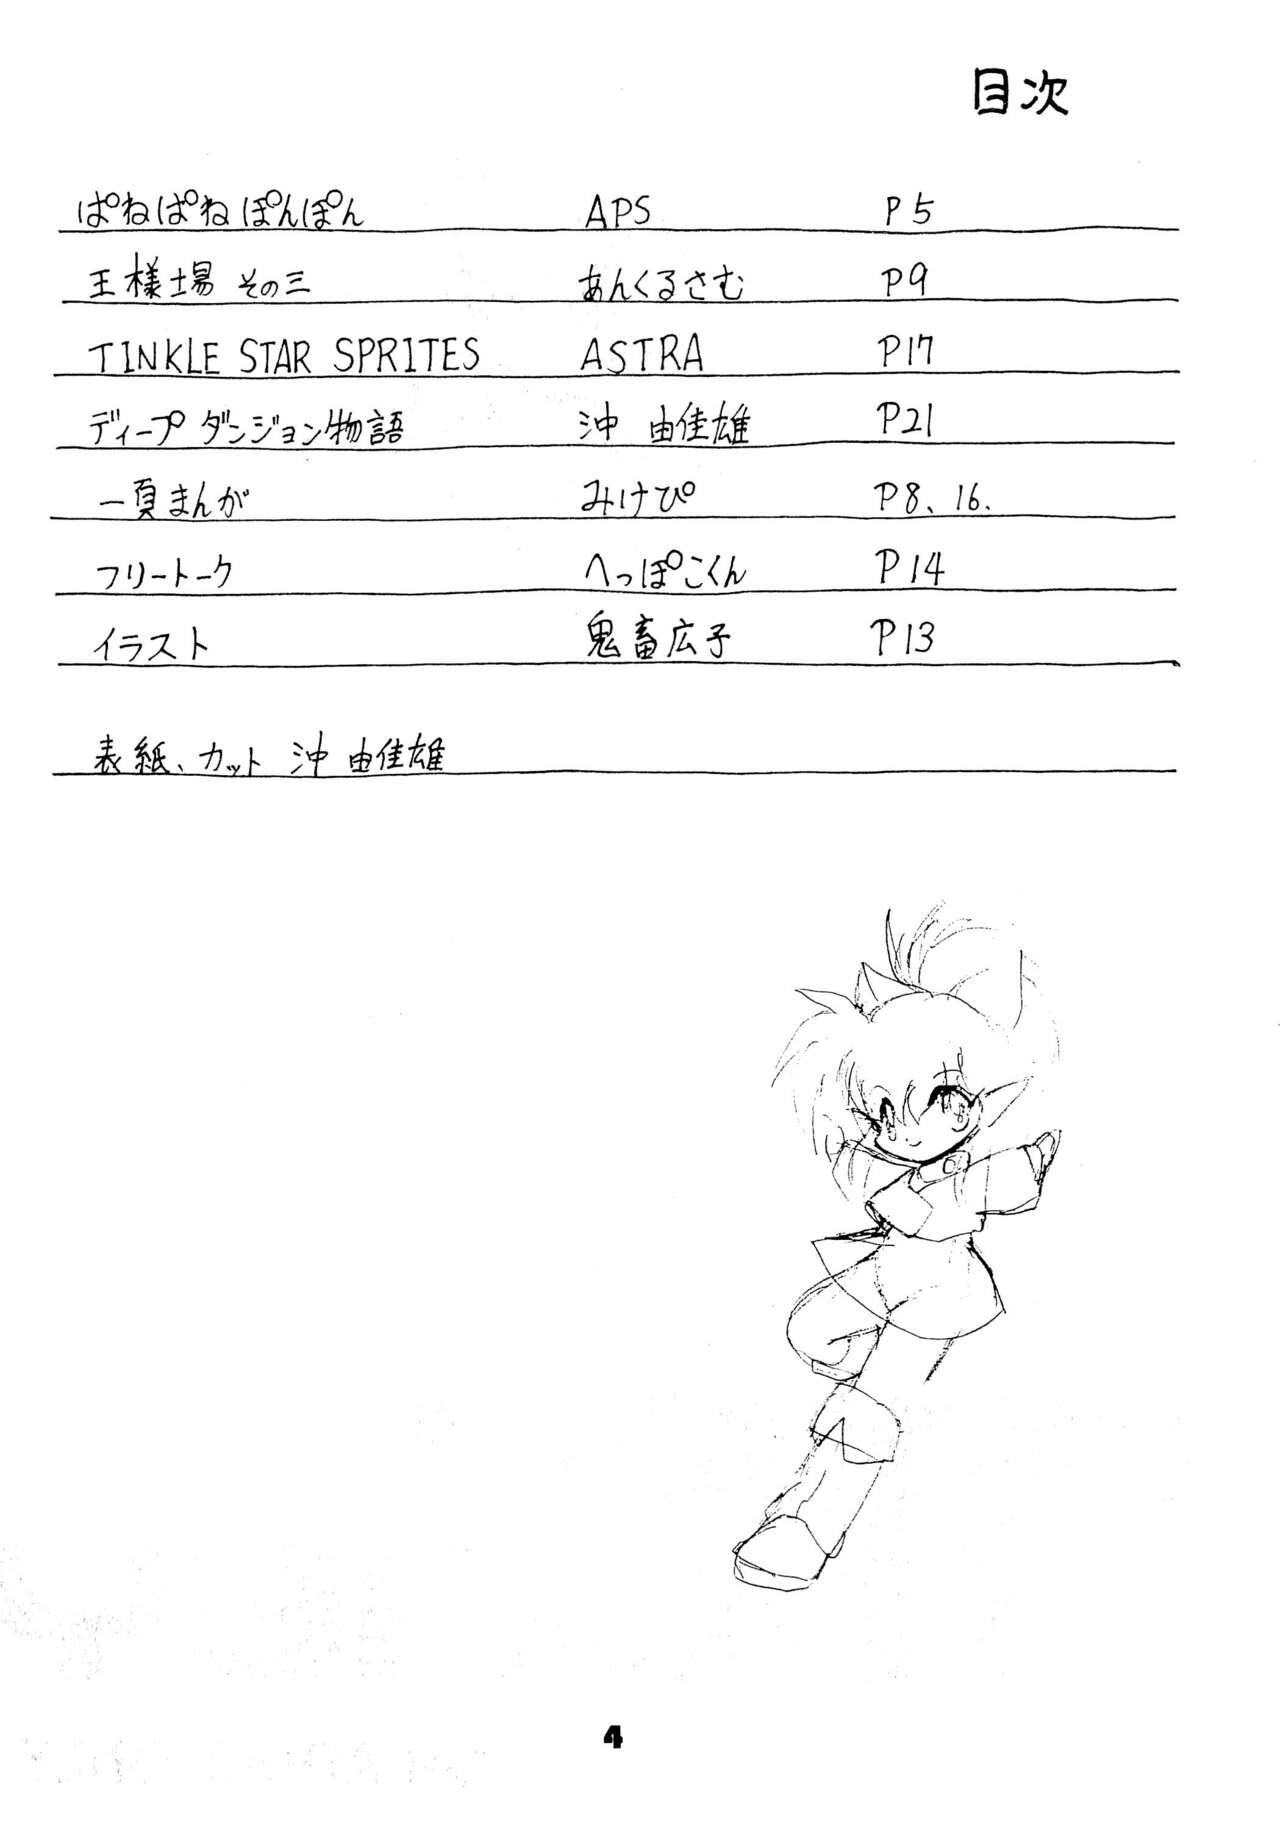 目次
ぱねぱねぽんぽん APS P5
王様士場 その三 あんくるさむ P9
TINKLE STAR SPRITES ASTRA P17
ディープダンジョン物語 沖 由佳雄 P21
一頁まんが みけぴ P8、16.
フリートーク へっぽこくん P14
イラスト 鬼畜広子 P13
表紙、カット 沖 由佳雄
4